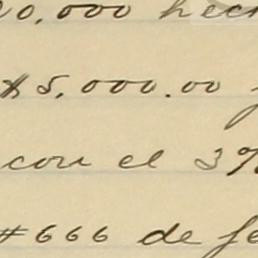 0,000 hech
$5,000.00
con el 3%
#666 de fe